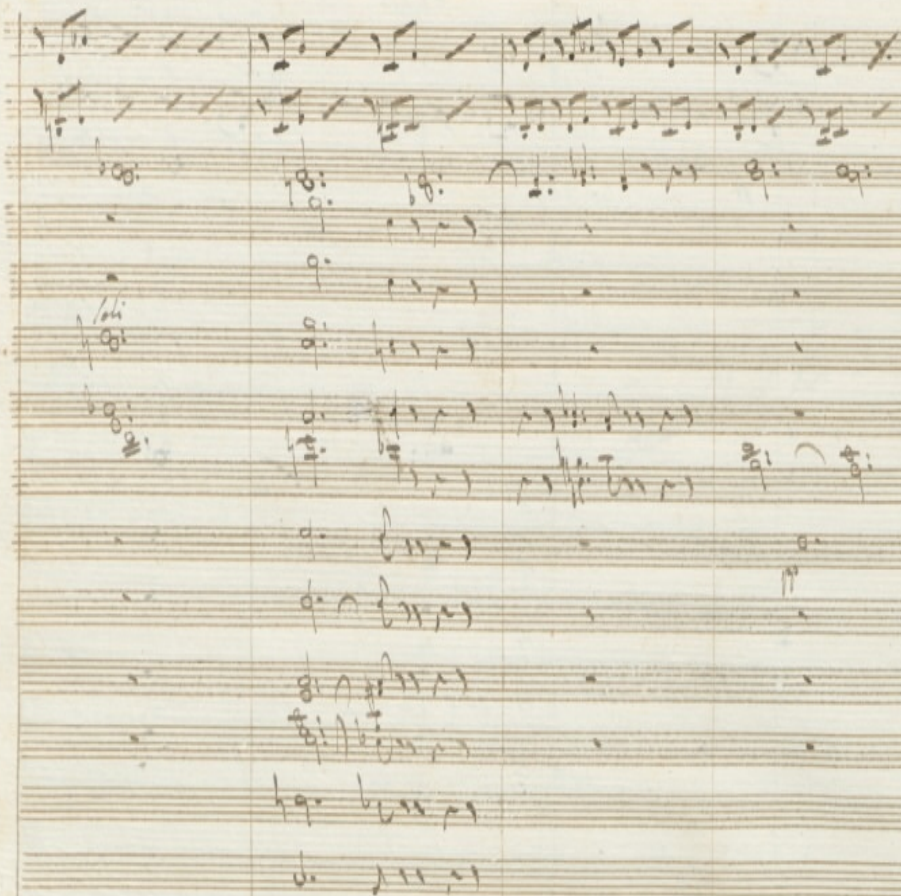 Soli
pp